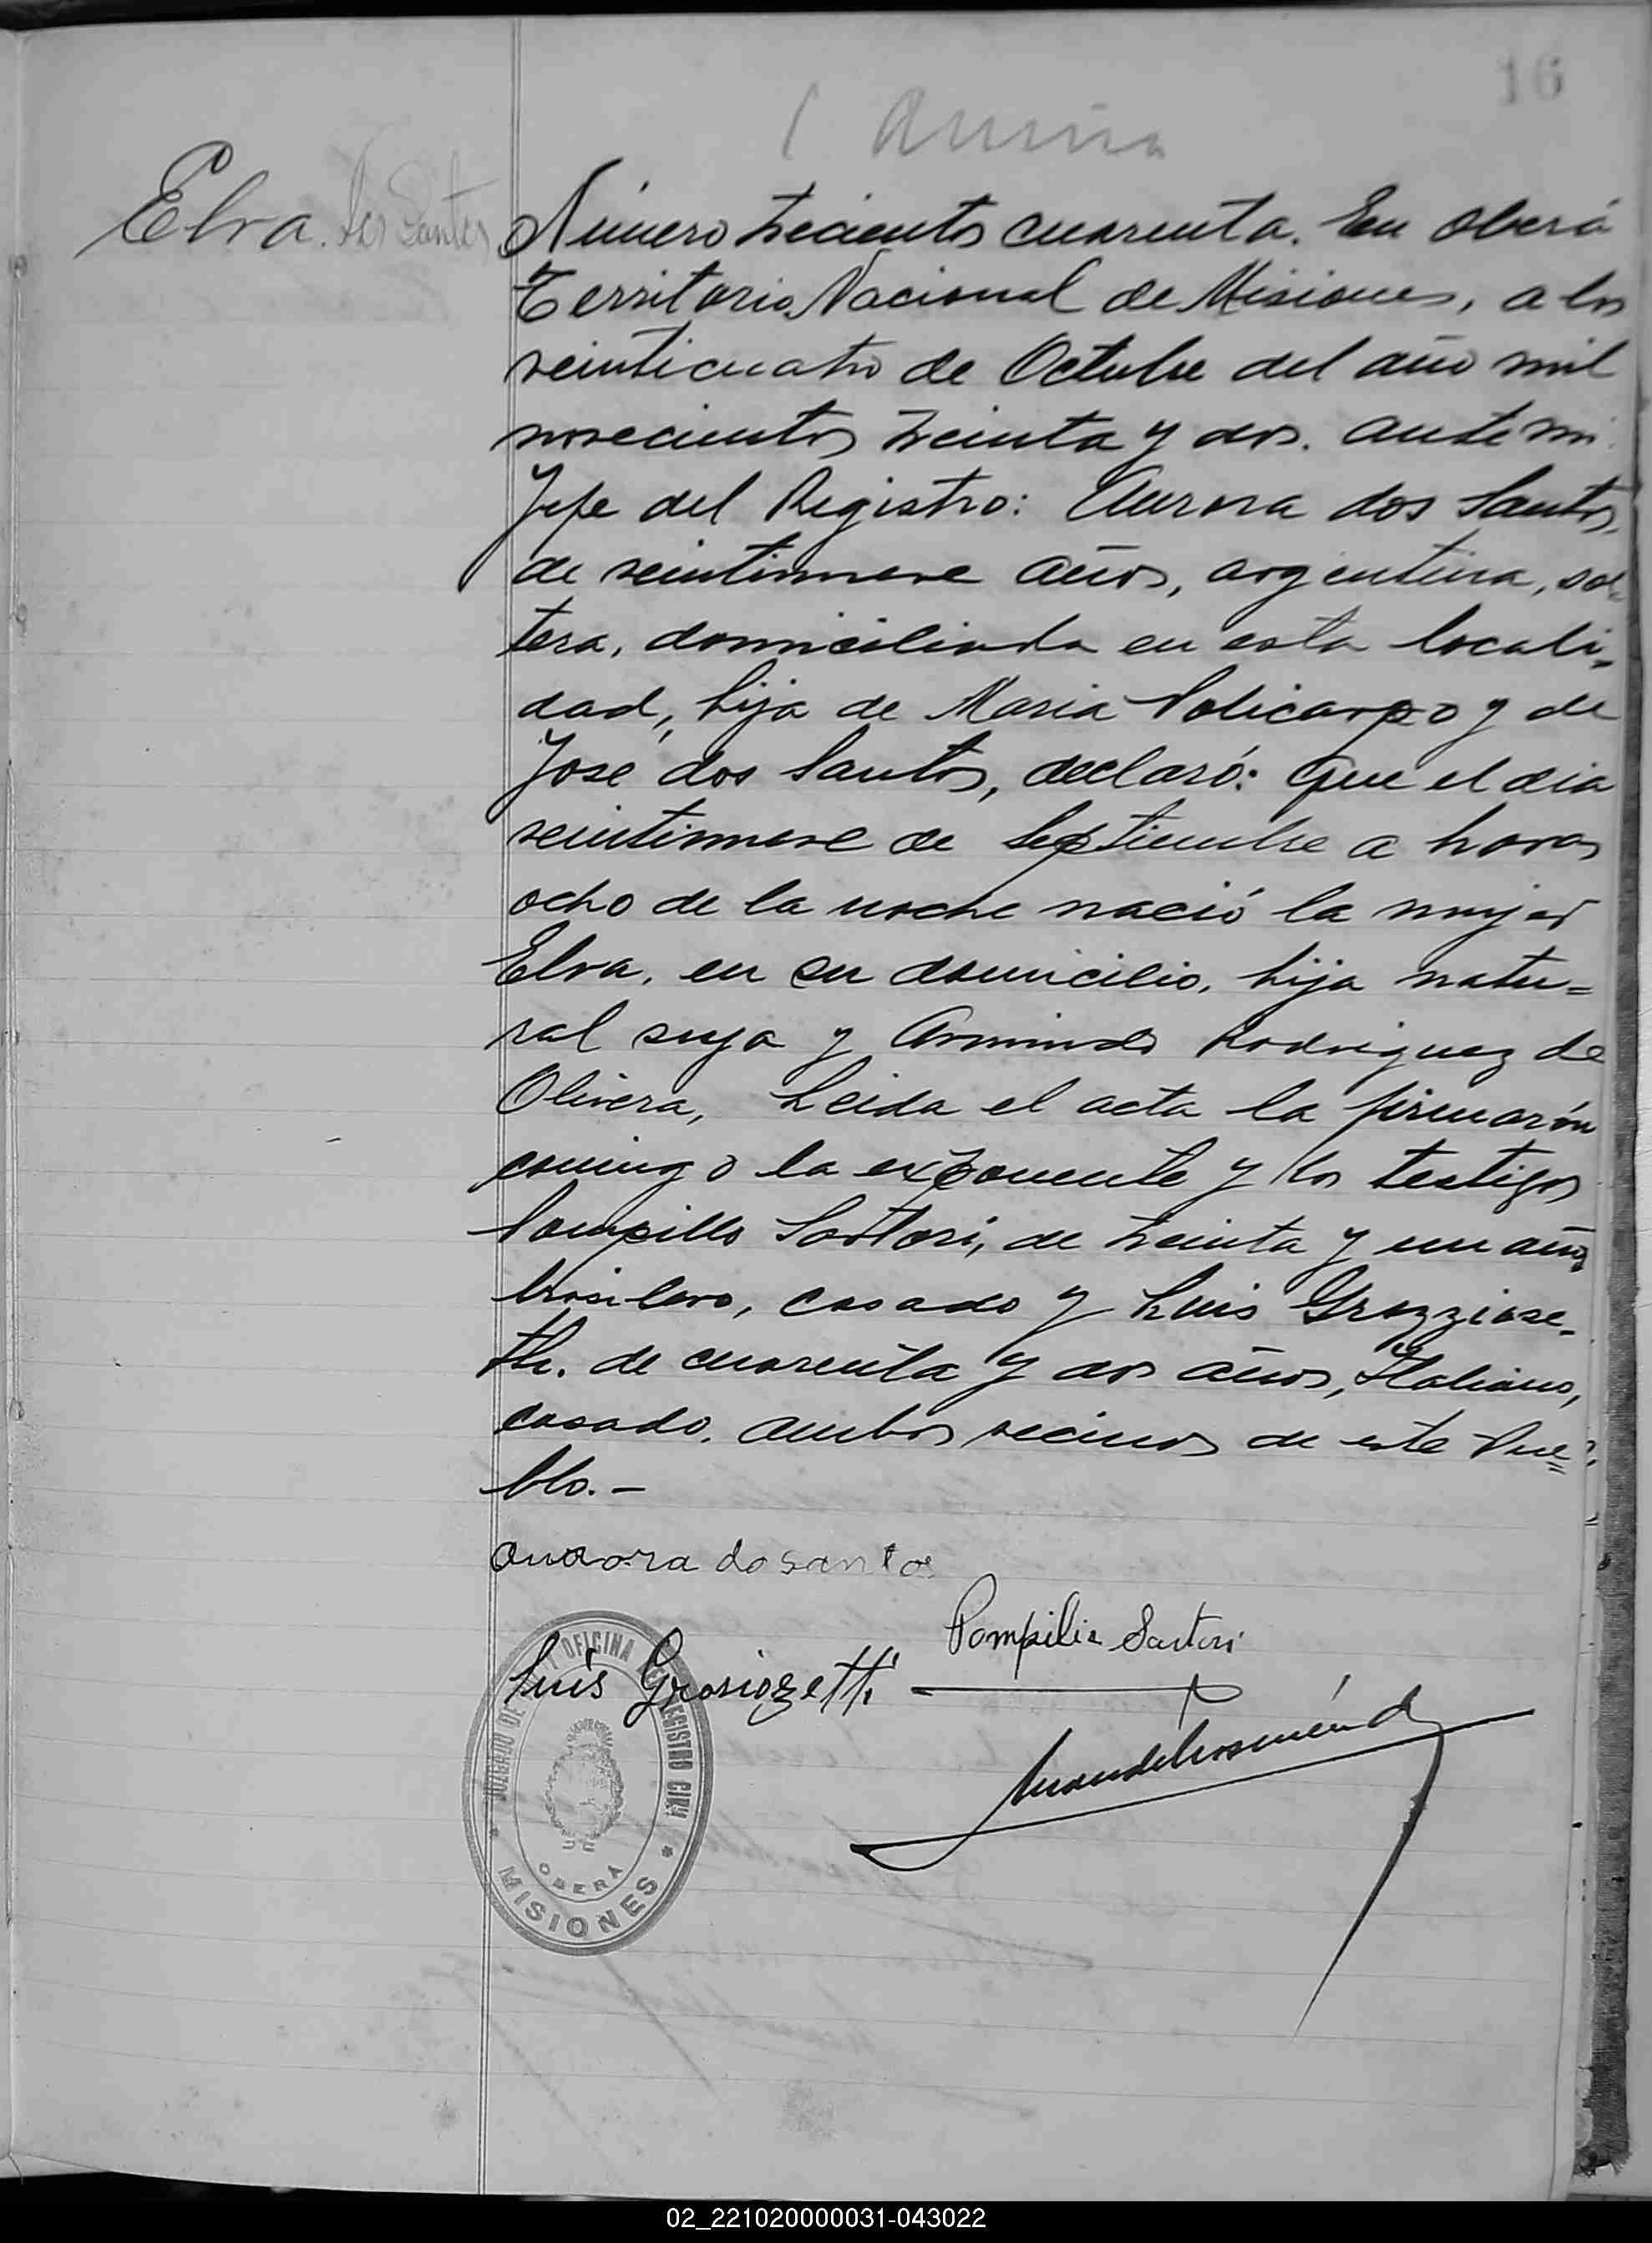 16
Elva. dos Santos
Número trecientos cuarenta. En Oberá
Territorio Nacional de Misiones, a los
veinticuatro de Octubre del año mil
novecientos treinta y dos. ante mi
Jefe del Registro: Aurora dos Santos,
de veintinueve años, argentina, sol-
tera, domiciliada en esta locali-
dad, hija de Maria Policarpo y de
José dos Santos, declaró: que el dia
veintinueve de Septiembre a horas
ocho de la noche nació la mujer
Elva, en su domicilio, hija natu=
ral suya y Armindo Rodriguez de
Olivera, Leida el acta la firmarón
conmigo la exponente y los testigos
Pompillo Sartori, de treinta y un años
brasilero, casado y Luis Grazziose-
tti. de cuarenta y dos años, Italiano,
casado. ambos vecinos de este Pue=
blo.-
aurora do santos
Pompilio Sartori
Luis Grosiozetti
JUZGADO DE OFICINA REGISTRO CIVIL
OBERÁ
MISIONES
02_221020000031-043022